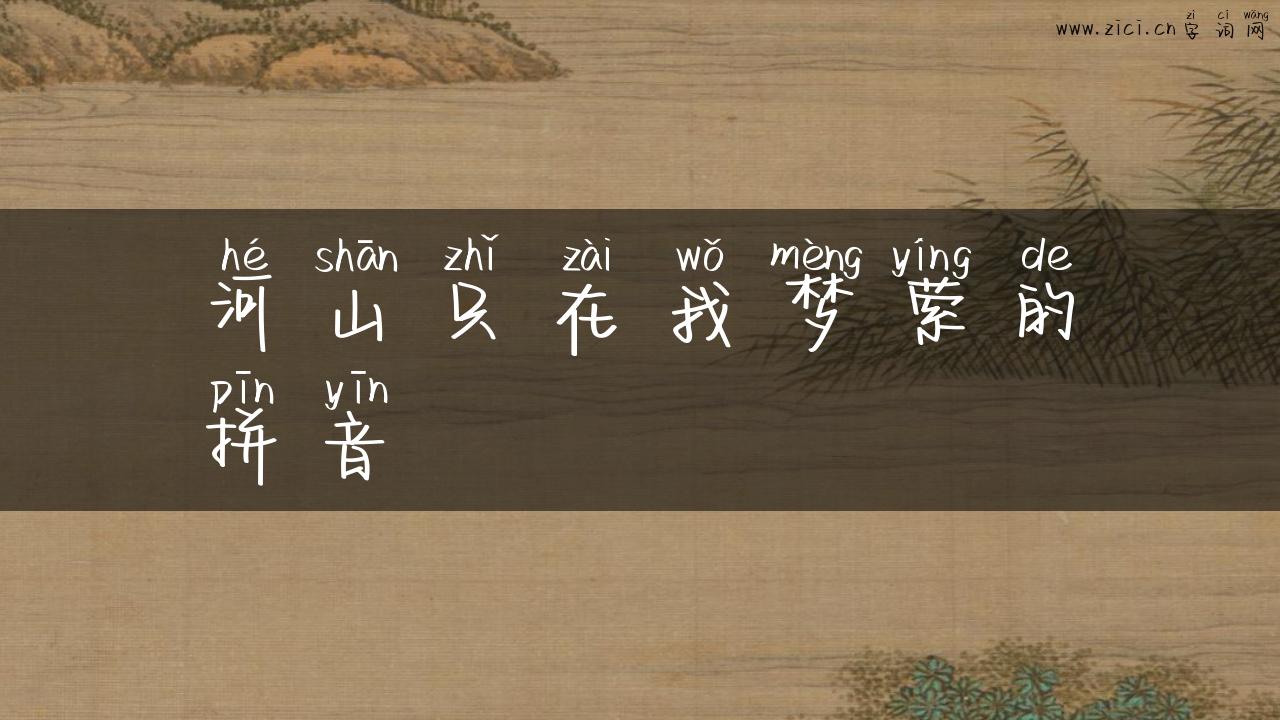 zì cí wǎng
www.zici.cn 字词网
hé shān zhǐ zài wǒ mèng yíng de
河山只在我梦萦的
pīn yīn
拼音